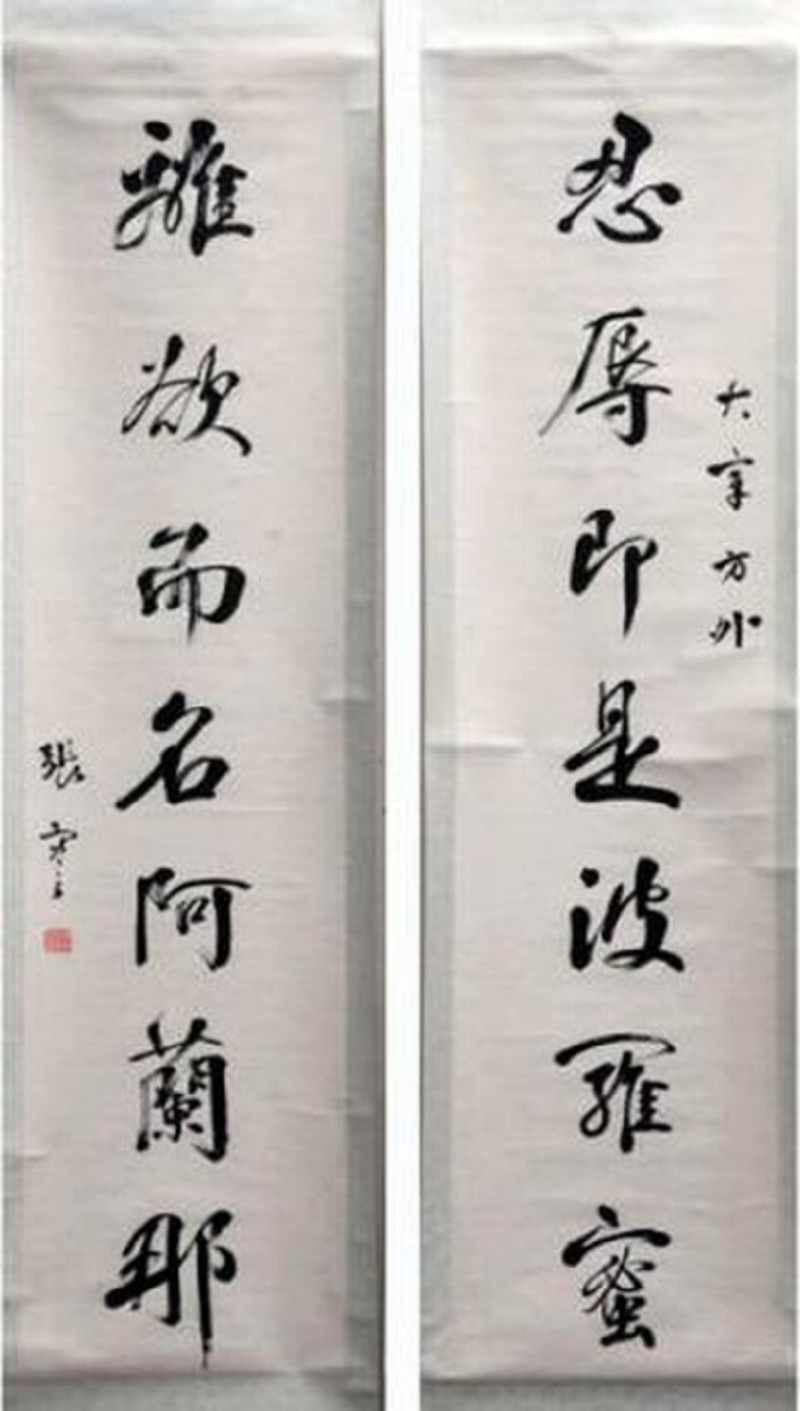 忍辱即是波羅蜜
大方外
離欲而名阿蘭那
張寒